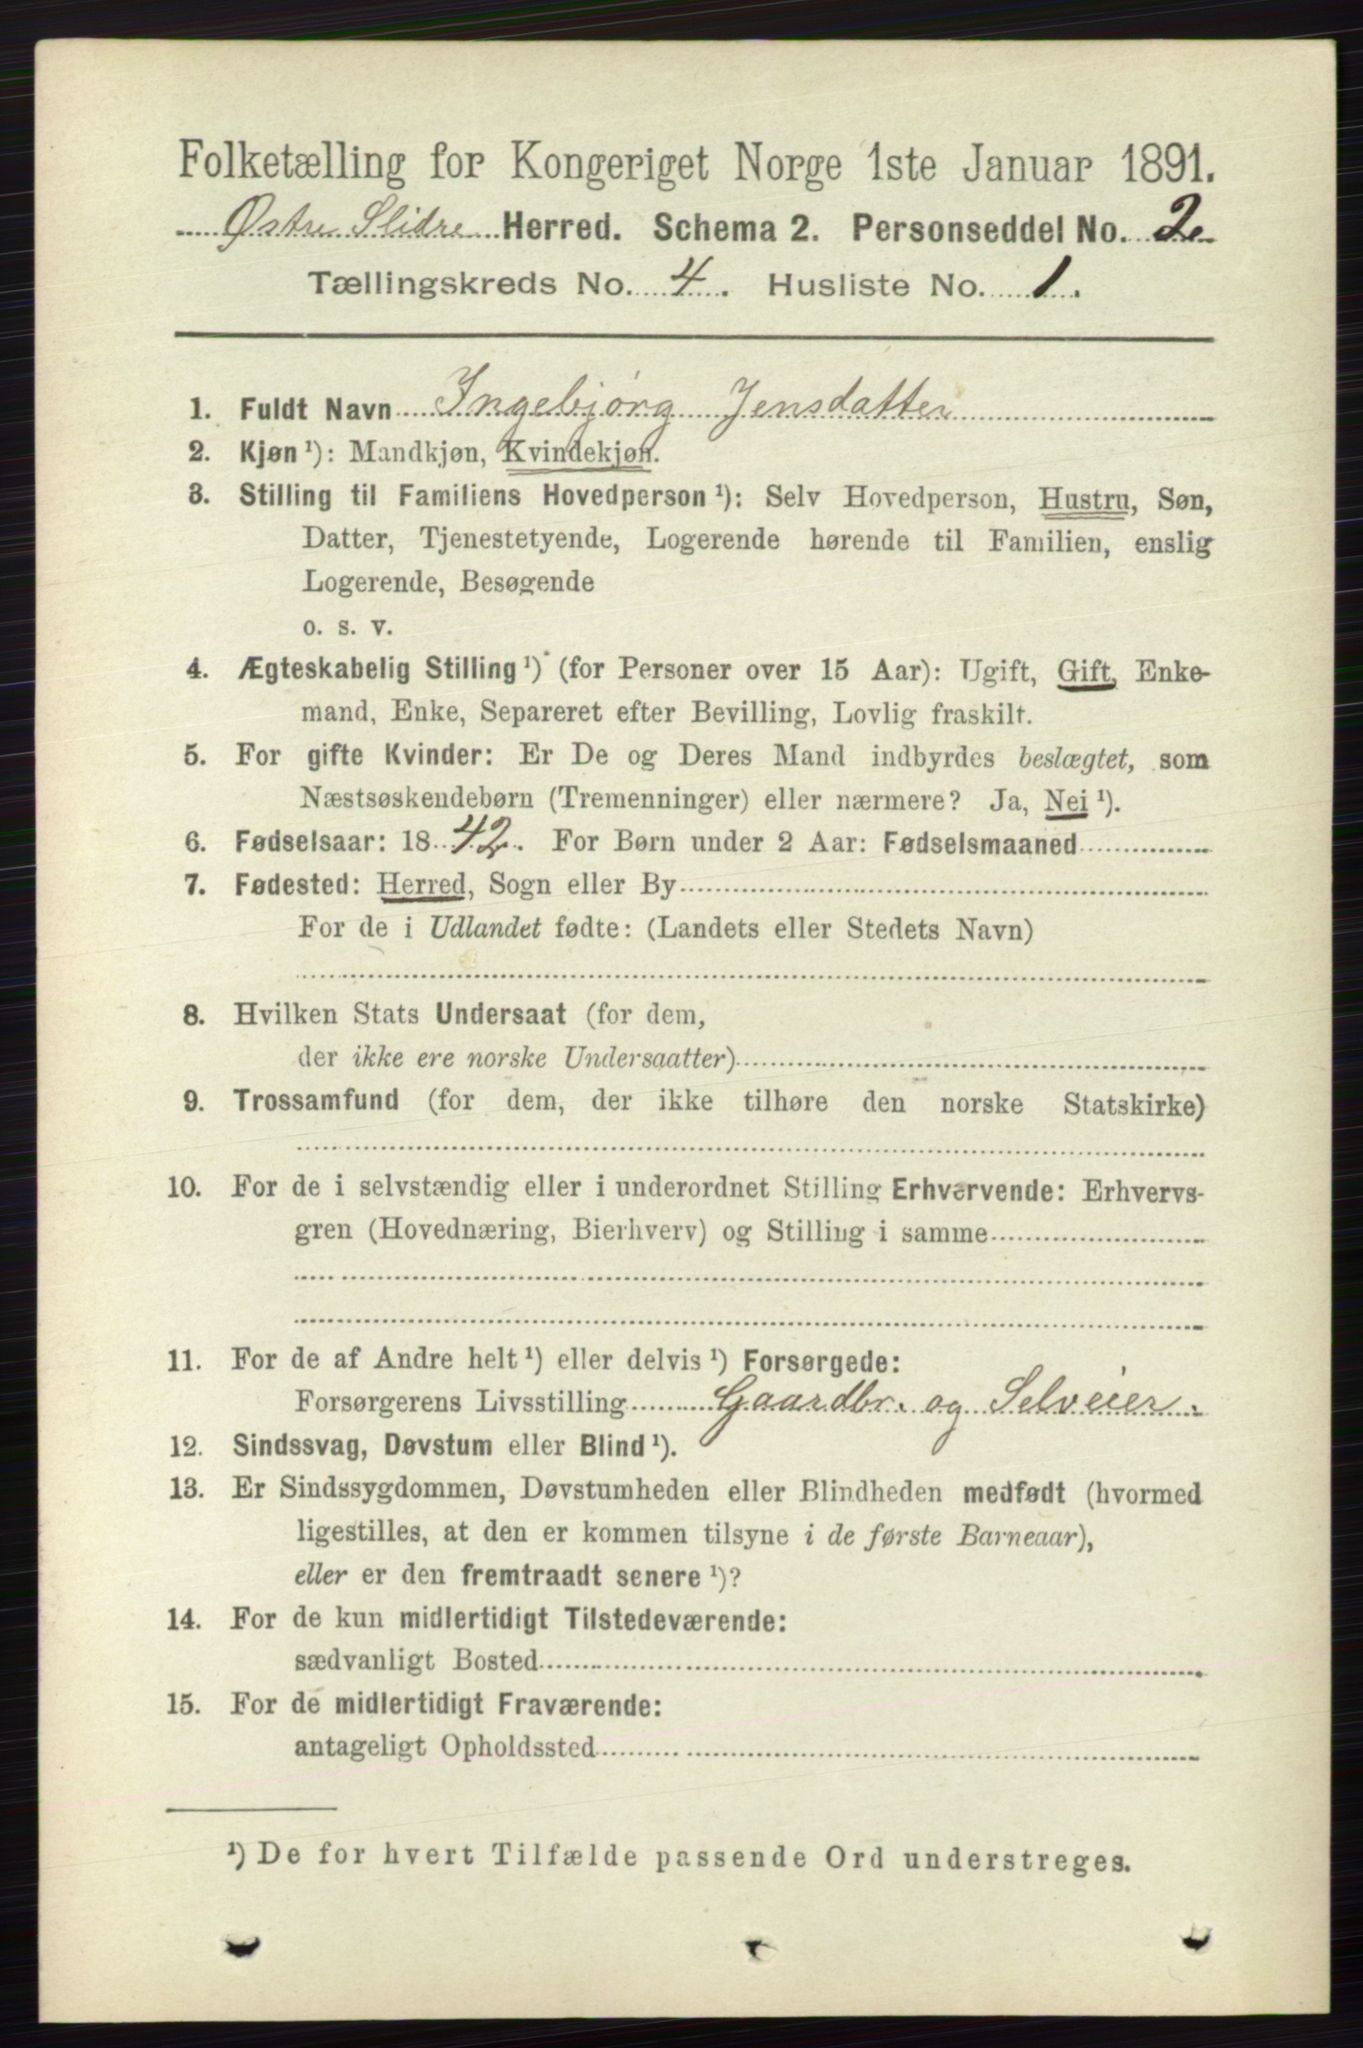 Folketælling for Kongeriget Norge 1ste Januar 1891.
Østre Slidre Herred. Schema 2. Personseddel No. 2.
Tællingskreds No. 4. Husliste No. 1.
1. Fuldt Navn Ingebjørg Jensdatter
2. Kjøn ¹): Mandkjøn, Kvindekjøn.
3. Stilling til Familiens Hovedperson ¹): Selv Hovedperson, Hustru, Søn,
Datter, Tjenestetyende, Logerende hørende til Familien, enslig
Logerende, Besøgende
o. s. v.
4. Ægteskabelig Stilling ¹) (for Personer over 15 Aar): Ugift, Gift, Enke-
mand, Enke, Separeret efter Bevilling, Lovlig fraskilt.
5. For gifte Kvinder: Er De og Deres Mand indbyrdes beslægtet, som
Næstsøskendebørn (Tremenninger) eller nærmere? Ja, Nei ¹).
6. Fødselsaar: 1842. For Børn under 2 Aar: Fødselsmaaned
7. Fødested: Herred, Sogn eller By
For de i Udlandet fødte: (Landets eller Stedets Navn)
8. Hvilken Stats Undersaat (for dem,
der ikke ere norske Undersaatter)
9. Trossamfund (for dem, der ikke tilhøre den norske Statskirke)
10. For de i selvstændig eller i underordnet Stilling Erhvervende: Erhvervs-
gren (Hovednæring, Bierhverv) og Stilling i samme
11. For de af Andre helt ¹) eller delvis ¹) Forsørgede:
Forsørgerens Livsstilling Gaardbr. og Selveier.
12. Sindssvag, Døvstum eller Blind ¹).
13. Er Sindssygdommen, Døvstumheden eller Blindheden medfødt (hvormed
ligestilles, at den er kommen tilsyne i de første Barneaar),
eller er den fremtraadt senere ¹)?
14. For de kun midlertidigt Tilstedeværende:
sædvanligt Bosted
15. For de midlertidigt Fraværende:
antageligt Opholdssted
¹) De for hvert Tilfælde passende Ord understreges.